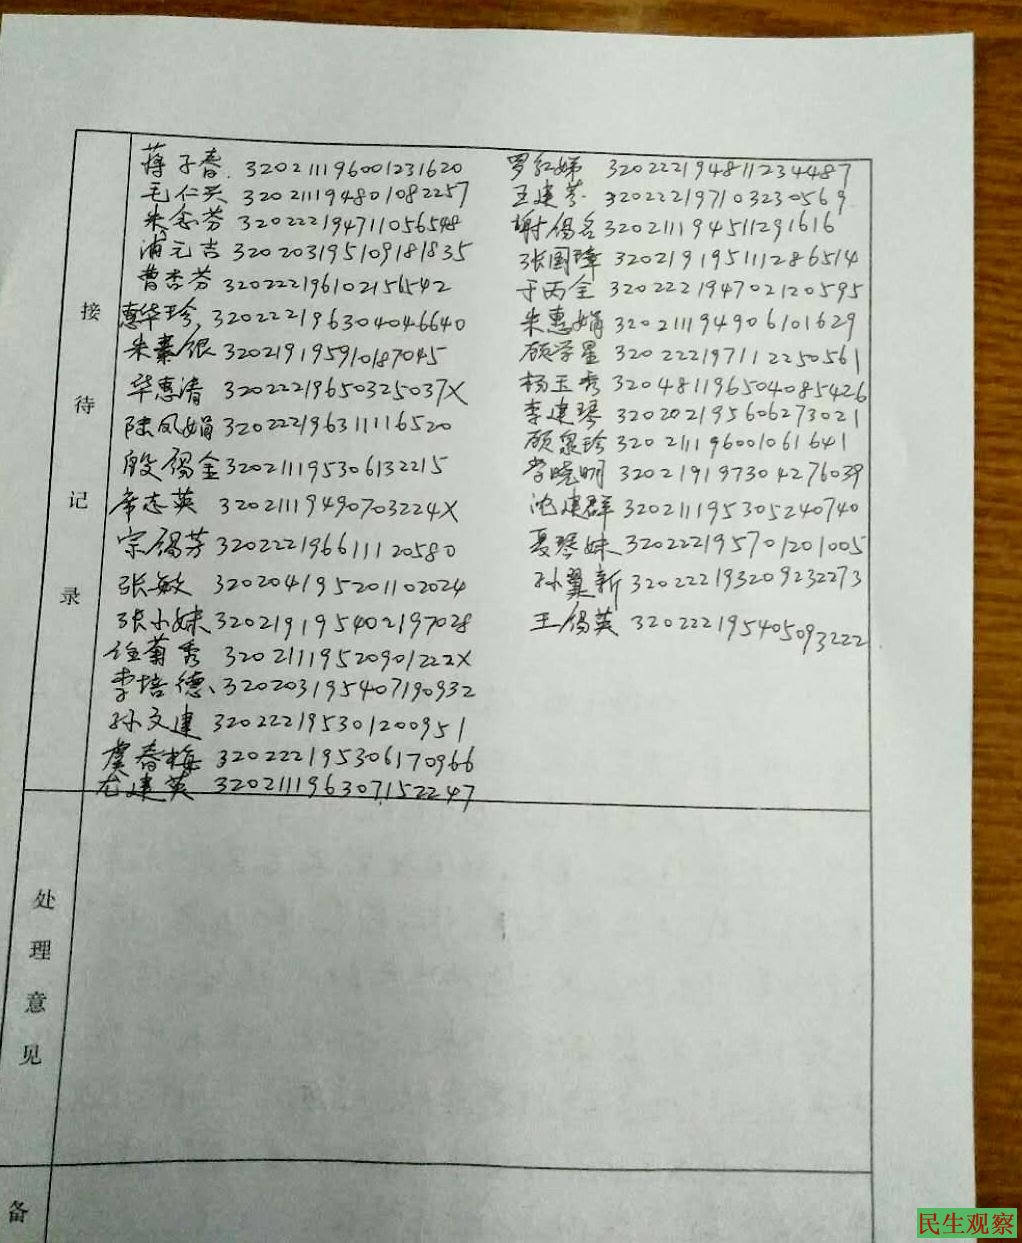 接待记录
蒋子春 320211196001231620
毛仁兴 320211194801082257
朱念芬 320222194711056548
浦元吉 320203195109181835
曹杏芬 320222196102156542
惠华珍 320222196304046640
朱素银 320219195910187045
华惠清 32022219650325037X
陆凤娟 320222196311116520
殷锡金 320211195306132215
席志英 32021119490703224X
宗锡芳 320222196611120580
张敏 320204195201102024
张小妹 320219195402197028
任菊秀 32021119520901222X
李培德 320203195407190932
孙文建 320222195301200951
虞春梅 320222195306170966
尤建英 320211196307152247
罗红娣 320222194811234487
王建芬 320222197103230569
谢锡名 320211194511291616
张国璋 320219195111286514
于丙全 320222194702120595
朱惠娟 320211194906101629
顾学星 320222197112250561
杨玉秀 320481196504085426
李建琴 320202195606273021
顾泉珍 320211196001061641
李晓明 320219197304276039
沈建群 320211195305240740
聂琴妹 320222195701201005
孙翼新 320222193209232273
王锡英 320222195405093222
处理意见
备
民生观察